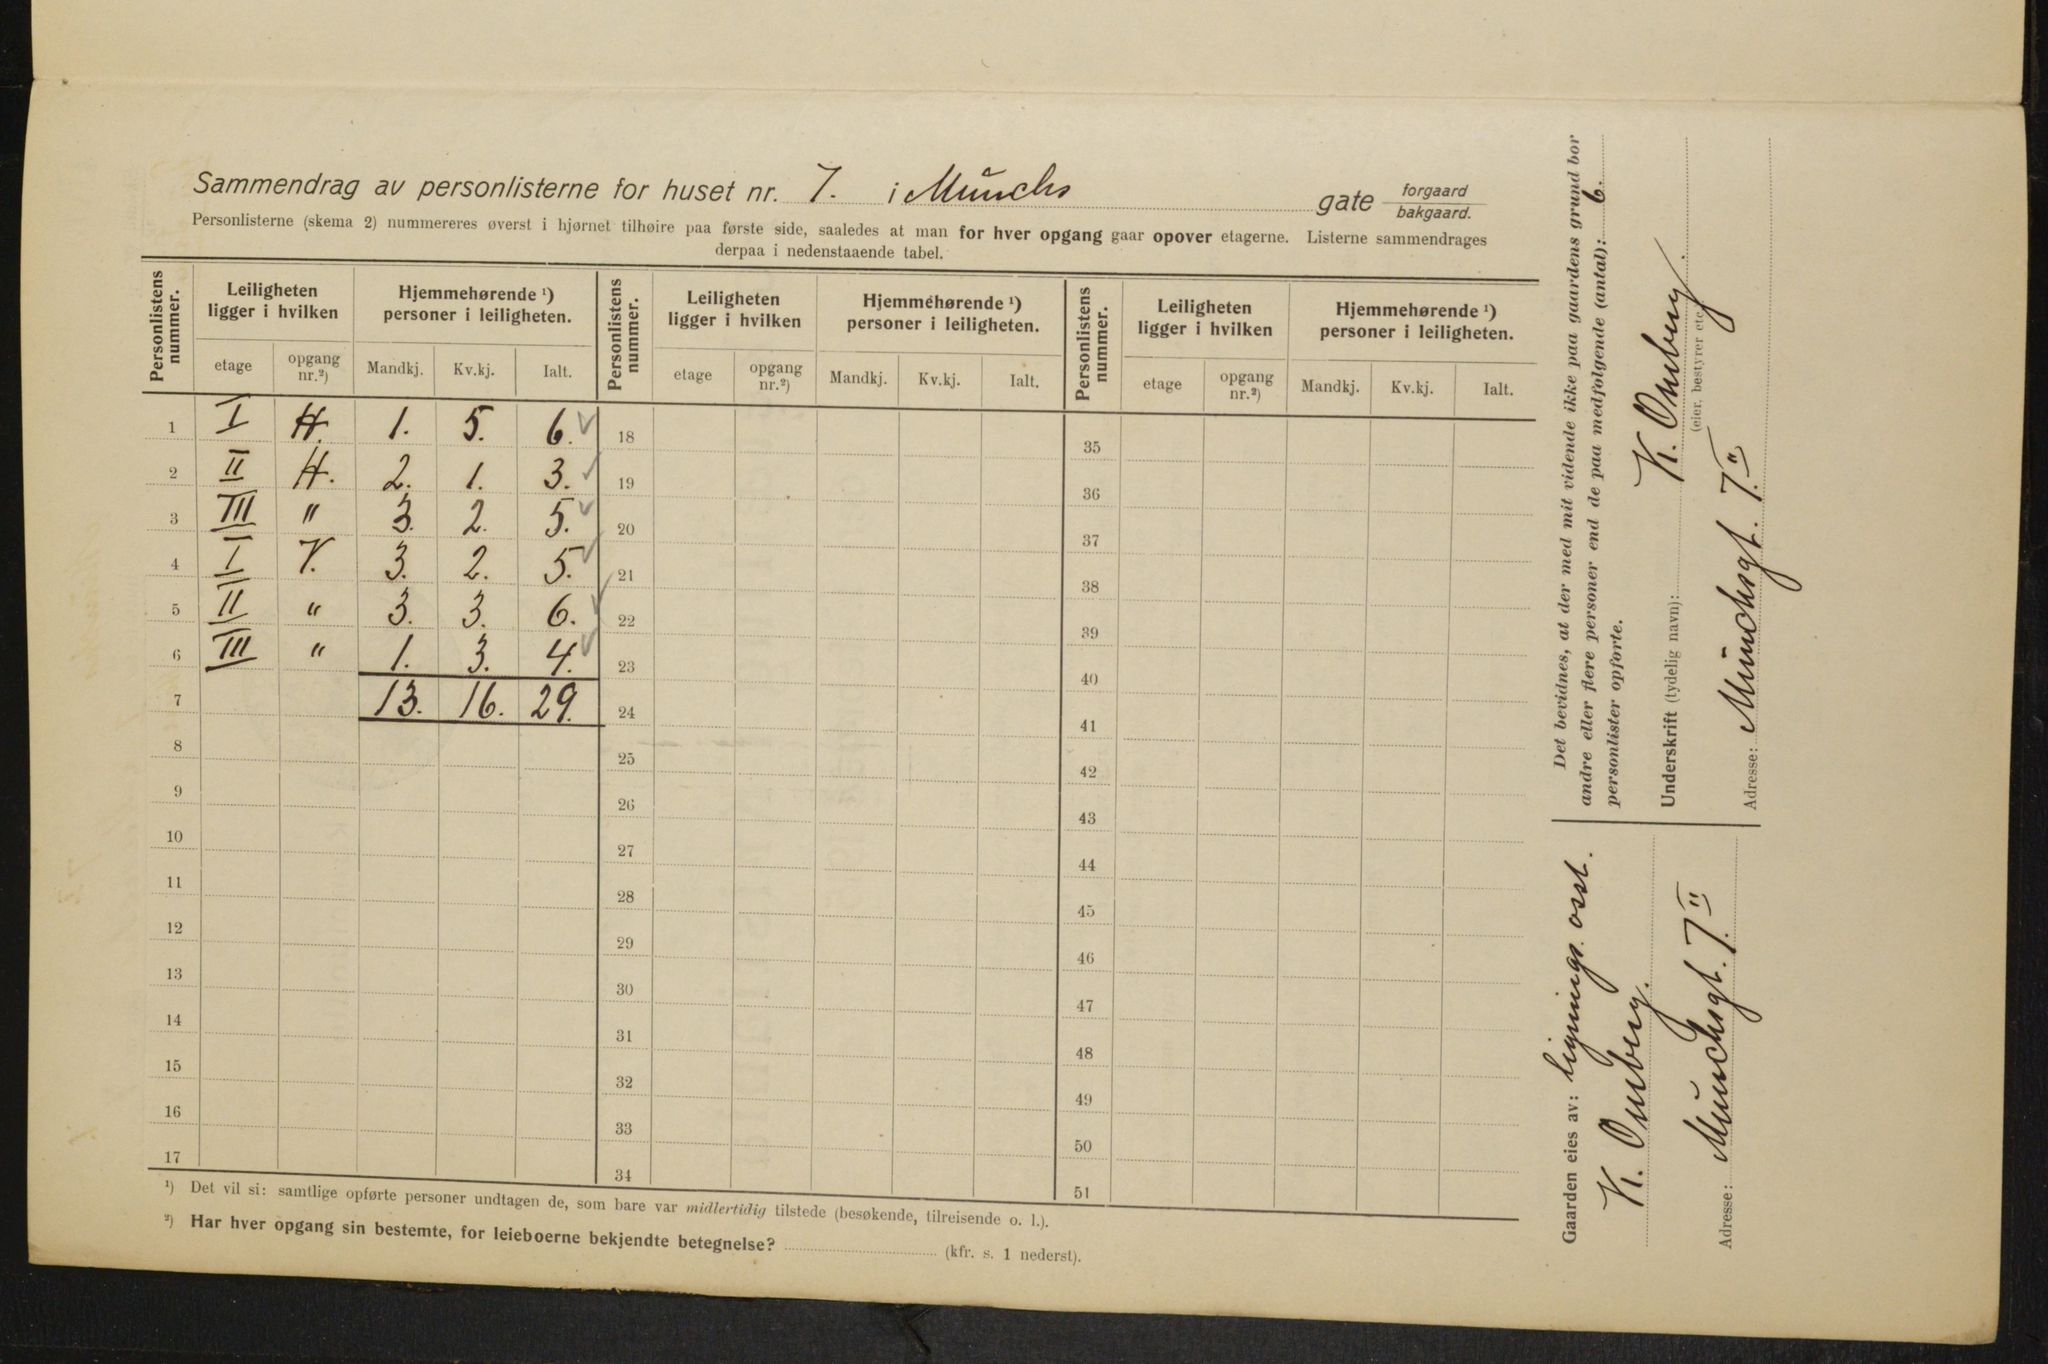 Sammendrag av personlisterne for huset nr. 7. i Münchs gate forgaard bakgaard.
Personlisterne (skema 2) nummereres øverst i hjørnet tilhøire paa første side, saaledes at man for hver opgang gaar opover etagerne. Listerne sammendrages
derpaa i nedenstaaende tabel.
Personlistens nummer. Leiligheten ligger i hvilken Hjemmehørende ¹) personer i leiligheten. Personlistens nummer. Leiligheten ligger i hvilken Hjemmehørende ¹) personer i leiligheten. Personlistens nummer. Leiligheten ligger i hvilken Hjemmehørende ¹) personer i leiligheten.
etage opgang nr.²) Mandkj. Kv.kj. Ialt. etage opgang nr.²) Mandkj. Kv.kj. Ialt. etage opgang nr.²) Mandkj. Kv.kj. Ialt.
1 I H. 1. 5. 6. ✓ 18 35
2 II H. 2. 1. 3. ✓ 19 36
3 III " 3. 2. 5. ✓ 20 37
4 I V. 3. 2. 5. ✓ 21 38
5 II " 3. 3. 6. ✓ 22 39
6 III " 1. 3. 4. ✓ 23 40
7 13. 16. 29. 24 41
8 25 42
9 26 43
10 27 44
11 28 45
12 29 46
13 30 47
14 31 48
15 32 49
16 33 50
17 34 51
¹) Det vil si: samtlige opførte personer undtagen de, som bare var midlertidig tilstede (besøkende, tilreisende o. l.).
²) Har hver opgang sin bestemte, for leieboerne bekjendte betegnelse? (kfr. s. 1 nederst).
Det bevidnes, at der med mit vidende ikke paa gaardens grund bor
andre eller flere personer end de paa medfølgende (antal): 6.
personlister opførte.
Underskrift (tydelig navn): K. Omberg.
(eier, bestyrer etc.)
Adresse: Münchsgt. 7.II
Gaarden eies av: lignings.
K. Omberg.
Adresse: Münchsgt. 7.II